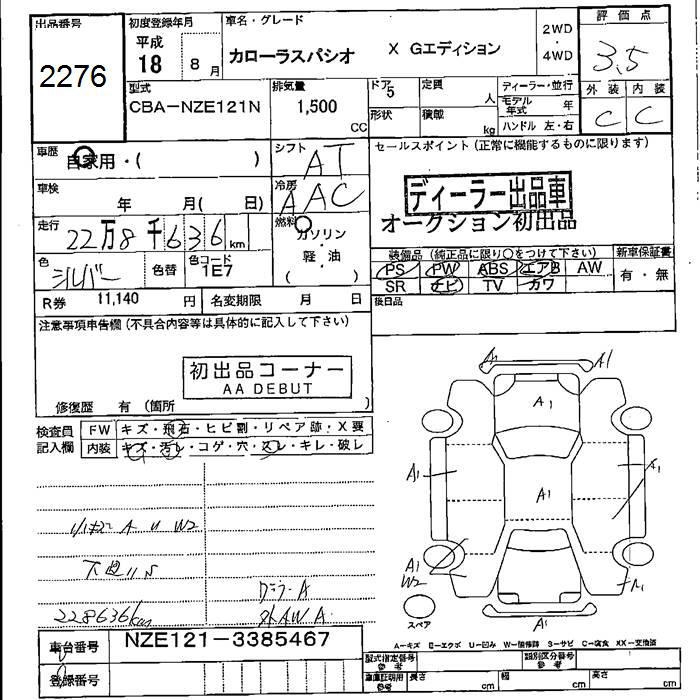 出品番号
2276
初度登録年月
平成
18 8 月
車名・グレード
カローラスパシオ X Gエディション
2WD
・
4WD
評価点
3.5
外装 内装
C C
型式
CBA-NZE121N
排気量
1,500
CC
ドア
5
形状
定員
人
積載
kg
ディーラー・並行
モデル年式 年
ハンドル 左・右
車歴
自家用・( )
シフト
AT
車検
年 月( 日)
冷房
AAC
走行
22万8千636km
燃料
ガソリン
軽・油
( )
色
シルバー
色替
色コード
1E7
R券 11,140 円
名変期限 月 日
セールスポイント(正常に機能するものに限ります)
ディーラー出品車
オークション初出品
装備品(純正品に限り○をつけて下さい)
PS PW ABS エアB AW
SR ナビ TV カワ
新車保証書
有・無
後日品
注意事項申告欄(不具合内容等は具体的に記入して下さい)
初出品コーナー
AA DEBUT
修復歴 有(箇所 )
検査員
記入欄
FW キズ・飛石・ヒビ割・リペア跡・X要
内装 キズ・汚レ・コゲ・穴・スレ・キレ・破レ
A U W2
228636km
A
外AW A
A1
A1
A1
A1
A1
A1
A1
W2
A1
A1
スペア
A-キズ E-エクボ U-凹み W-補修跡 S-サビ C-腐食 XX-交換済
車台番号 NZE121-3385467
登録番号
型式指定番号
参考
類別区分番号
参考
車庫証明用
参考
長さ cm
幅 cm
高さ cm